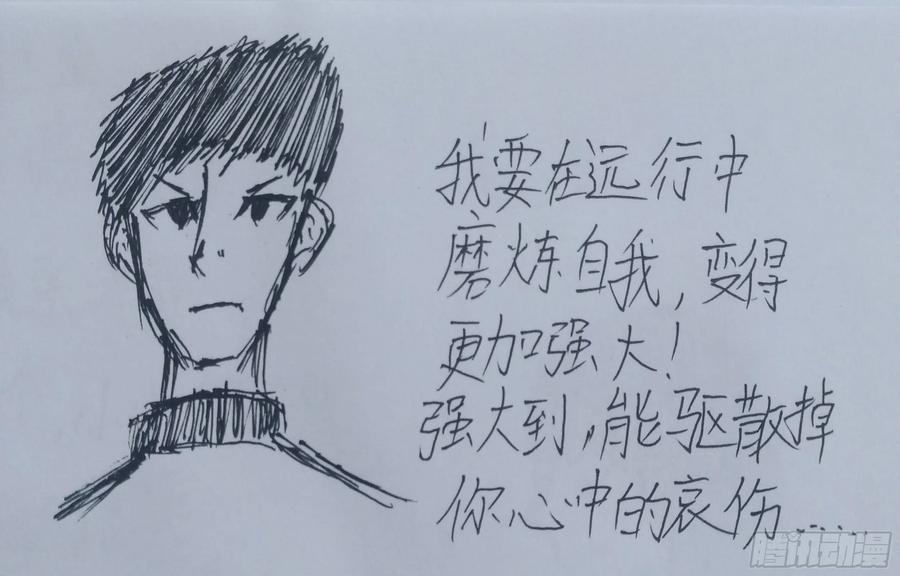 我要在远行中
磨炼自我，变得
更加强大！
强大到，能驱散掉
你心中的哀伤……
腾讯动漫